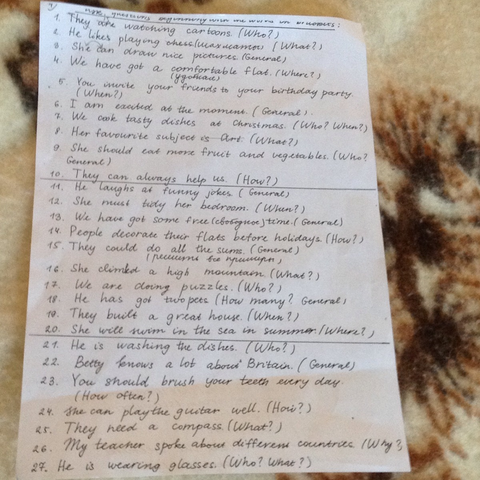 questions beginning with the word in brackets:
1. They are watching cartoons. (Who?)
2. He likes playing chess/шахматы (What?)
3. She can draw nice pictures. (General)
4. We have got a comfortable flat. (Where?)
5. You invite your friends to your birthday party.
(When?)
6. I am excited at the moment. (General).
7. We cook tasty dishes at Christmas. (Who? When?)
8. Her favourite subject is Art. (What?)
9. She should eat more fruit and vegetables. (Who?
General)
10. They can always help us. (How?)
11. He laughs at funny jokes. (General)
12. She must tidy her bedroom. (When?)
13. We have got some free (свободное) time. (General)
14. People decorate their flats before holidays. (How?)
15. They could do all the sums. (General)
(решить все примеры)
16. She climbed a high mountain. (What?)
17. We are doing puzzles. (Who?)
18. He has got two pets (How many? General)
19. They built a great house. (When?)
20. She will swim in the sea in summer. (Where?)
21. He is washing the dishes. (Who?)
22. Betty knows a lot about Britain. (General)
23. You should brush your teeth every day.
(How often?)
24. She can play the guitar well. (How?)
25. They need a compass. (What?)
26. My teacher spoke about different countries. (Why?)
27. He is wearing glasses. (Who? What?)